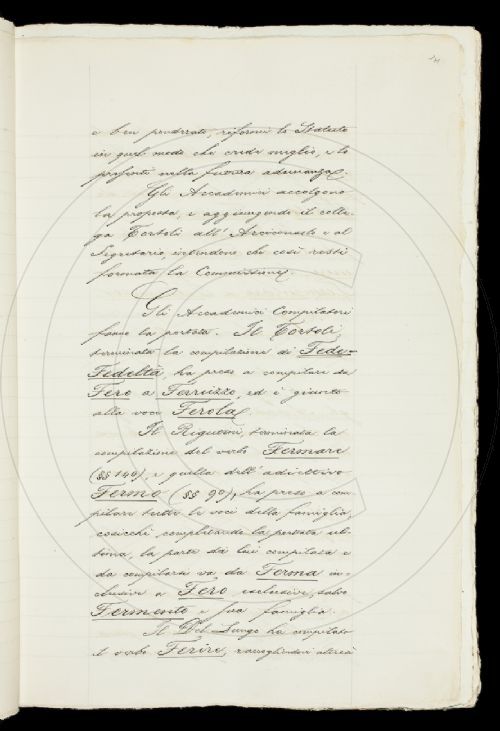 e ben ponderato, riformi lo Statuto
in quel modo che crede meglio, e lo
presenti nella futura adunanza.
Gli Accademici accolgono
la proposta, e aggiungendo il colle-
ga Tortoli all' Arciconsolo e al
Segretario, intendono che così resti
formata la Commissione.
Gli Accademici Compilatori
fanno la portata. Il Tortoli,
terminata la compilazione di Fede-
Fedeltà, ha preso a compilare da
Fero a Ferruzzo, ed è giunto
alla voce Ferola.
Il Rigutini, terminata la
compilazione del verbo Fermare
(§§ 144), e quella dell' adiettivo
Fermo (§§ 90), ha preso a com-
pilare tutte le voci della famiglia,
cosicchè complendo la portata ul-
tima, la parte da lui compilata e
da compilare va da Ferma in-
clusive a Fero exclusive, salvo
Fermento e sua famiglia.
Il Del-Lungo ha compilato
il verbo Ferire, raccogliendovi altresì